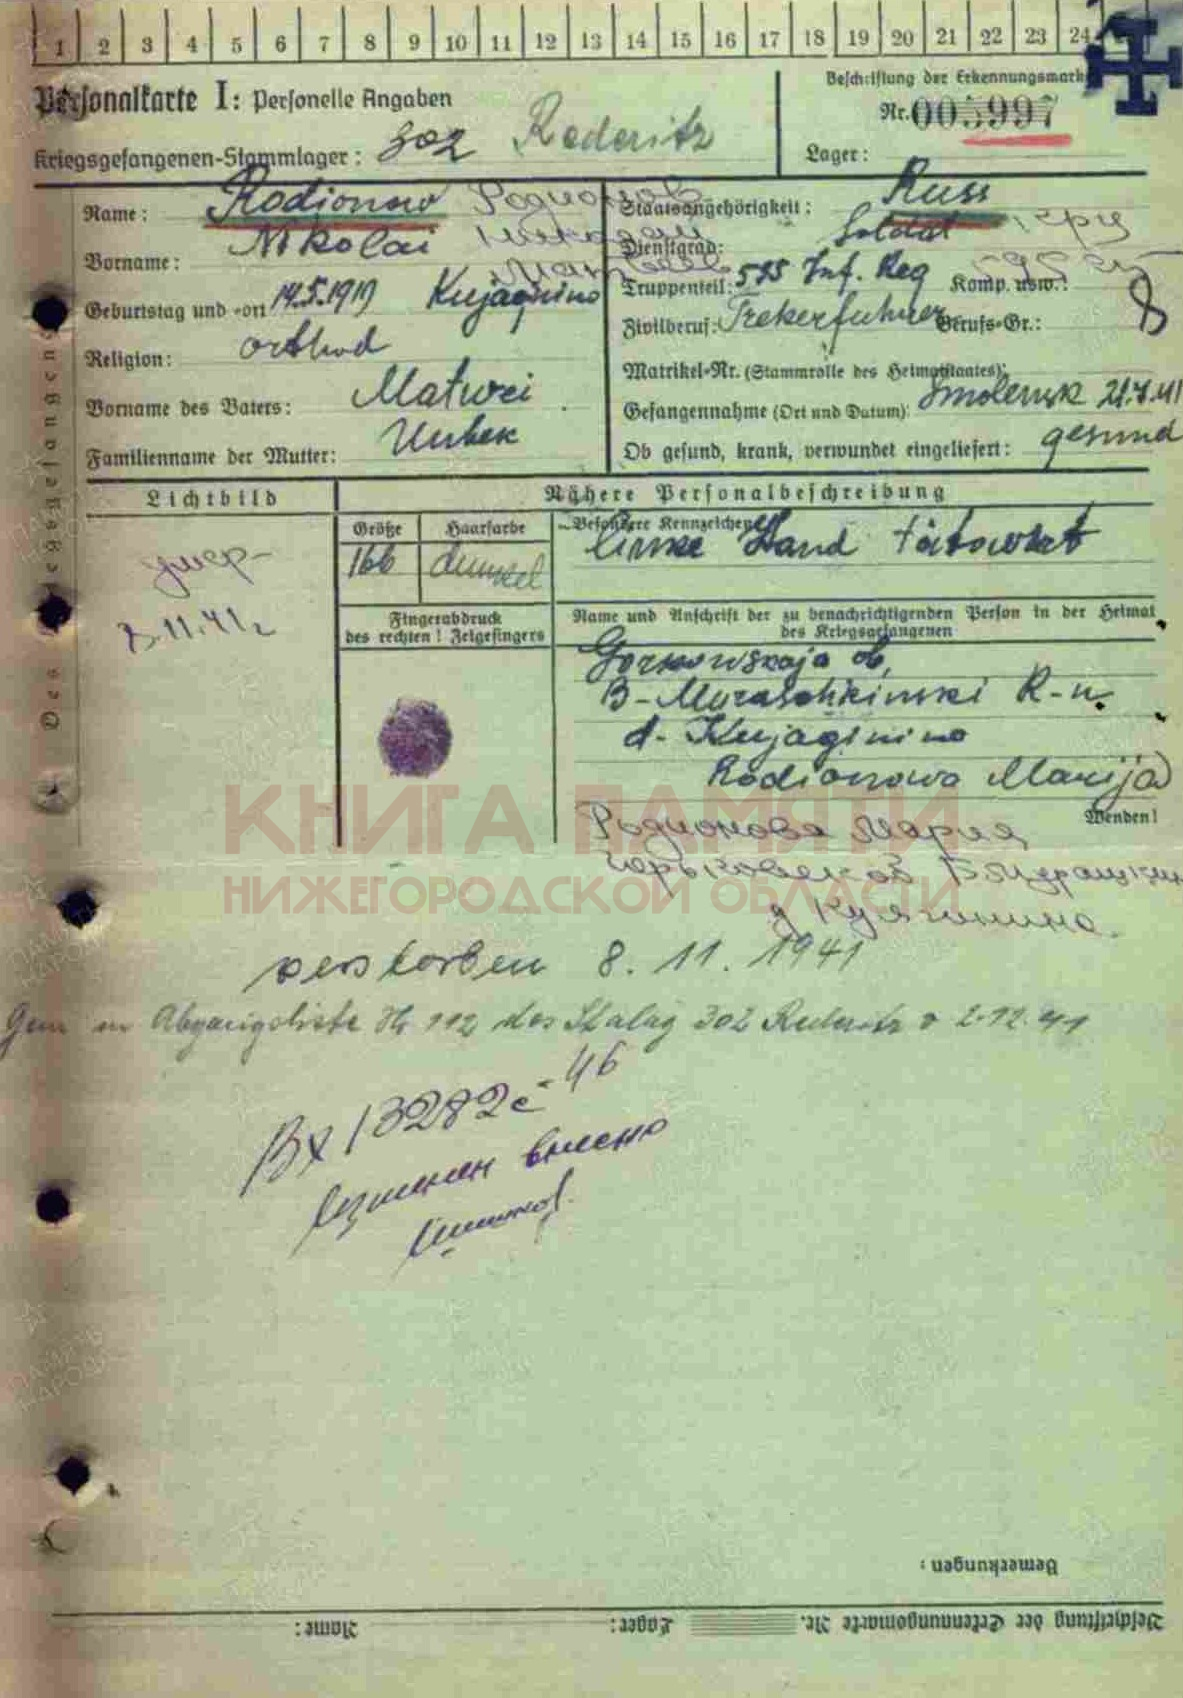 1 2 3 4 5 6 7 8 9 10 11 12 13 14 15 16 17 18 19 20 21 22 23 24
Personalkarte I: Personelle Angaben
Beschriftung der Erkennungsmarke
Nr. 005997
Kriegsgefangenen-Stammlager: 302 Rederitz
Lager:
Name: Rodionow Родионов
Staatsangehörigkeit: Russ
Vorname: Nikolai Николай
Dienstgrad: Soldat
Матвеев
Truppenteil: 535 Inf. Reg Komp. usw.:
Geburtstag und -ort 14.5.1919 Kujaginino
Zivilberuf: Trekerfuhrer Berufs-Gr.: 8
Religion: orthod
Matrikel-Nr. (Stammrolle des Heimatstaates):
Vorname des Vaters: Matwei
Gefangennahme (Ort und Datum): Smolensk 21.7.41
Familienname der Mutter:
Ob gesund, krank, verwundet eingeliefert: gesund
Des Kriegsgefangenen
Lichtbild
Nähere Personalbeschreibung
Größe Haarfarbe Besondere Kennzeichen
166 dunkel linke Hand tätowirt
умер-
8.11.41г
Fingerabdruck
des rechten! Zeigefingers
Name und Anschrift der zu benachrichtigenden Person in der Heimat
des Kriegsgefangenen
Gorkowskaja ob,
B-Muraschkinski R-n.
d. Kujaginino
Rodionowa Marija
Wenden!
Родионова Мария
Горьковской Б Мурашкин
д Кулягинино
КНИГА ПАМЯТИ
НИЖЕГОРОДСКОЙ ОБЛАСТИ
verstorben 8. 11. 1941
Gem in Abgangsliste Nr 112 des Stalag 302 Rederitz v 2.12.41
Вх 13282с-46
внесено
Bemerkungen:
Beschriftung der Erkennungsmarke Nr. Lager: Name: